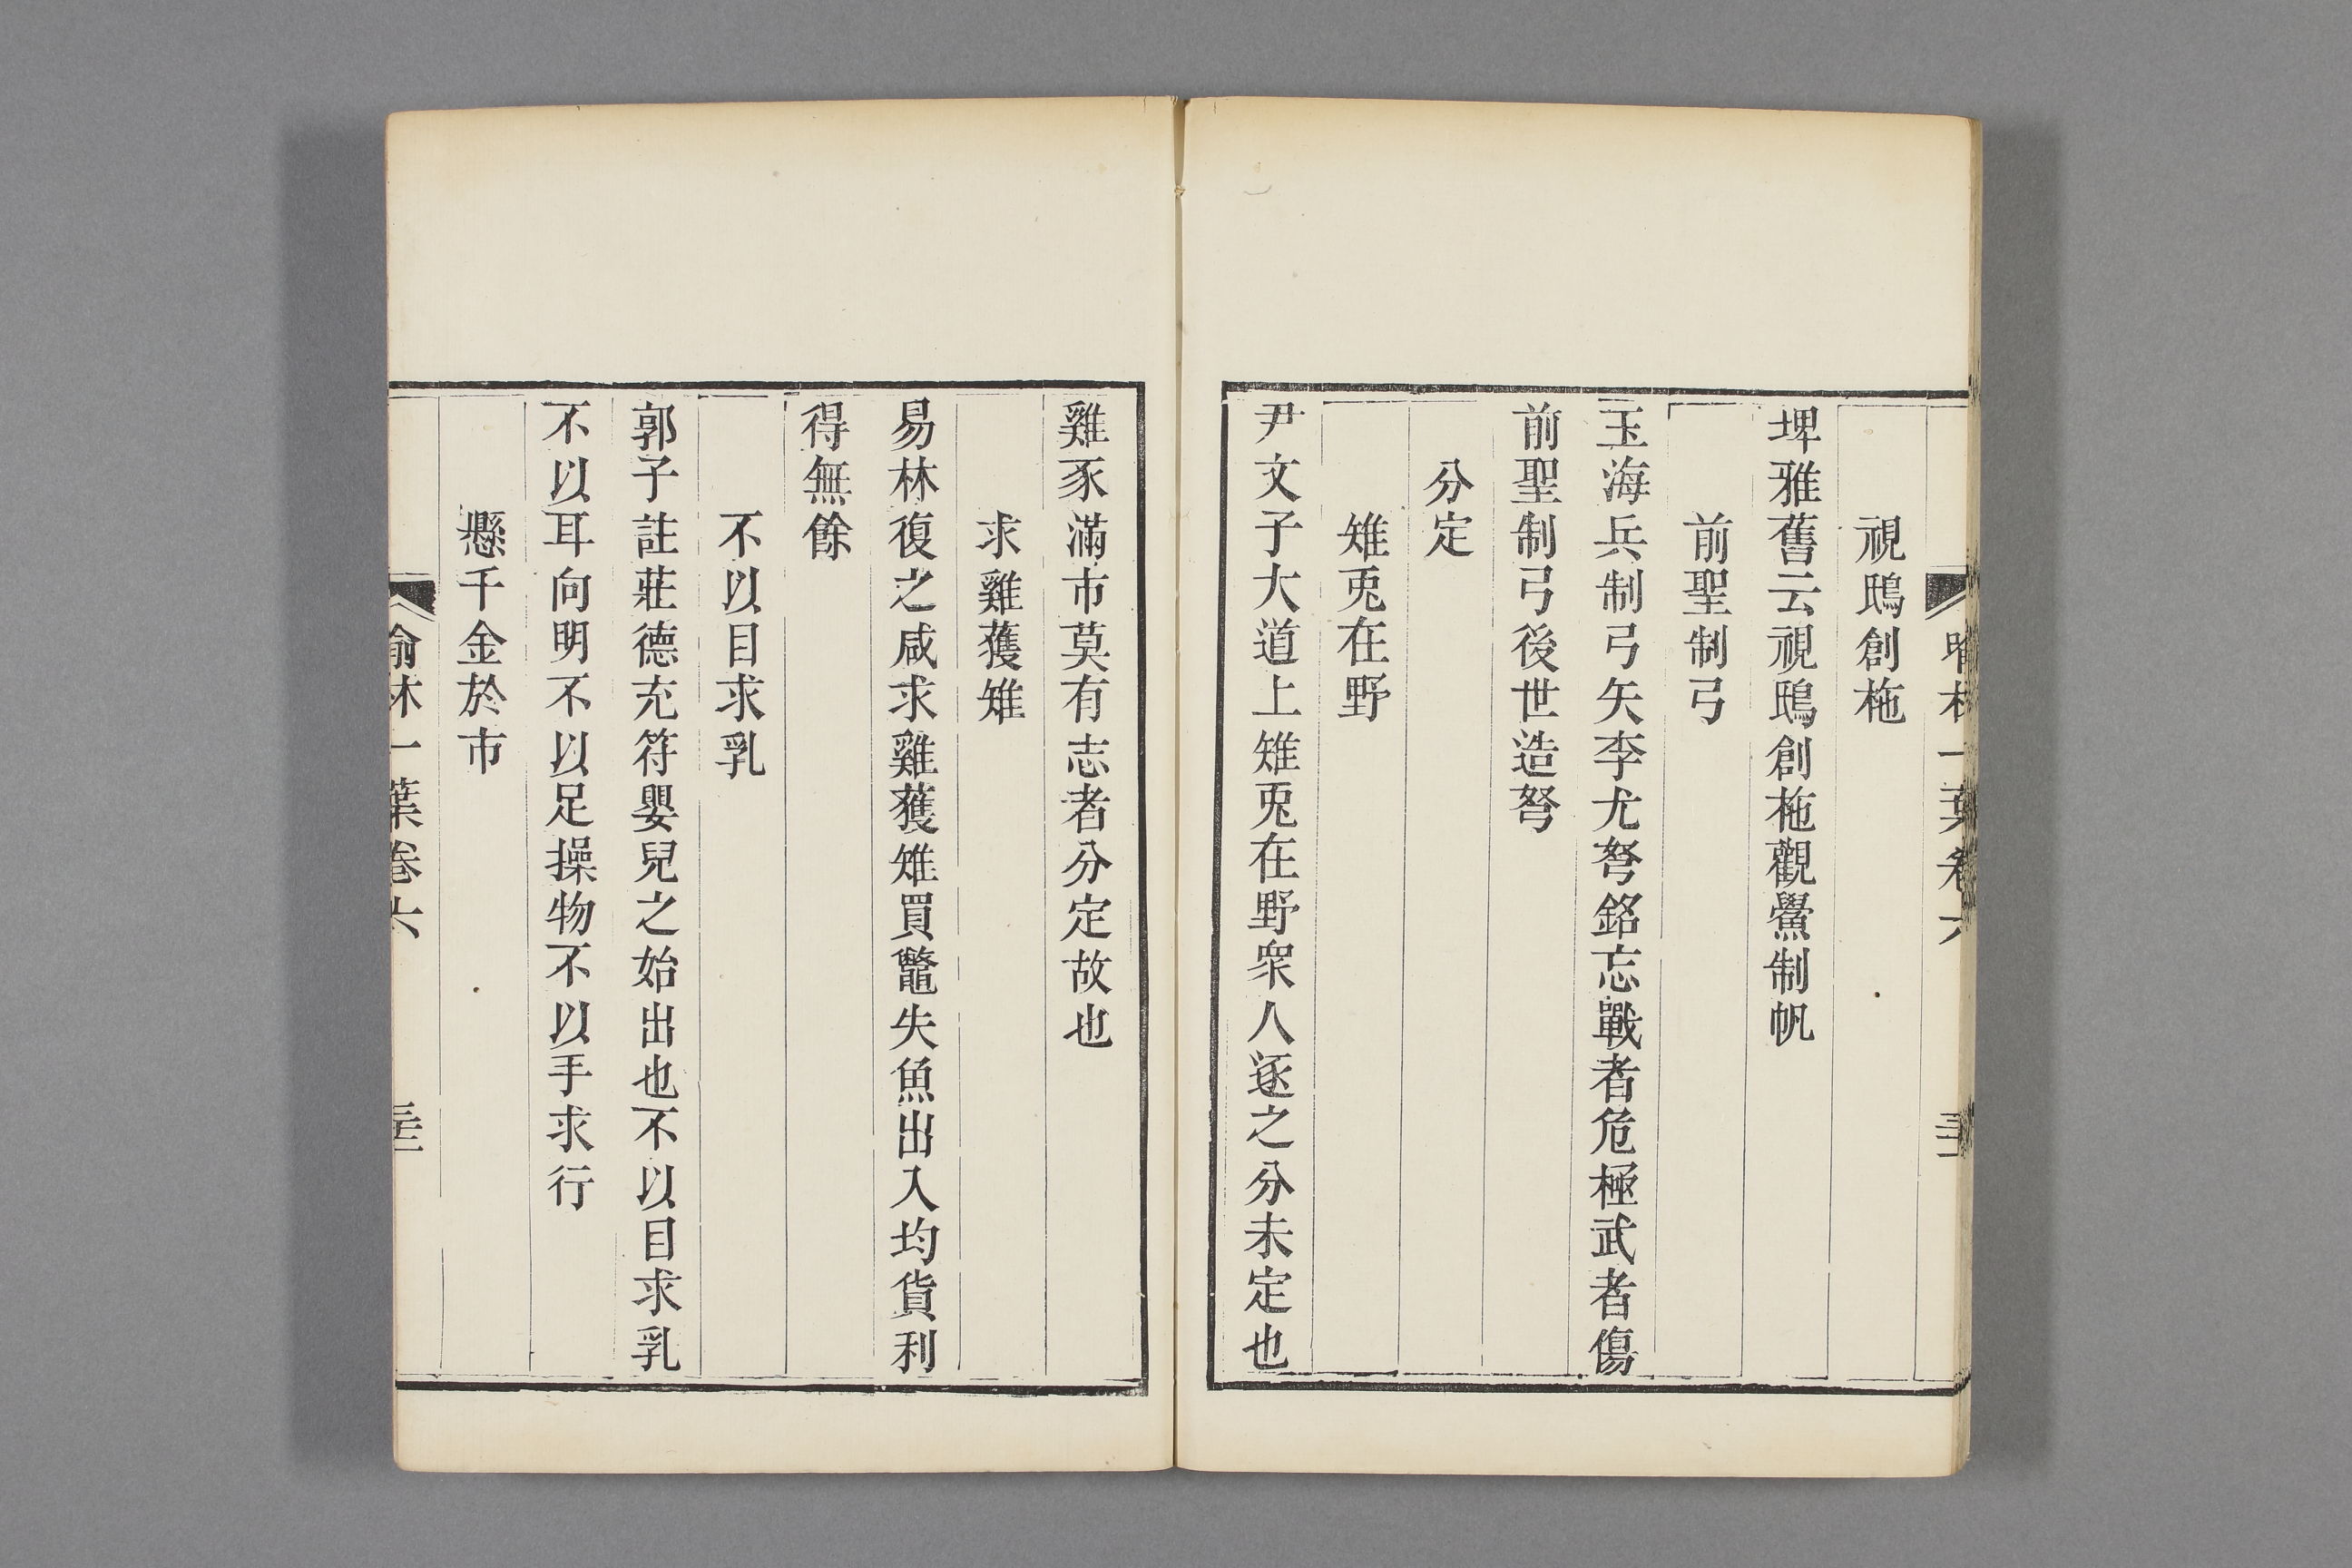 視鴟創柂
埤雅舊云視鴟創柂觀鱟制帆
前聖制弓
玉海兵制弓矢李尤弩銘忘戰者危極武者傷
前聖制弓後世造弩
分定
雉兎在野
尹文子大道上雉兎在野衆人逐之分未定也
雞豕滿市莫有志者分定故也
求雞獲雉
易林復之咸求雞獲雉買鼈失魚出入均貨利
得無餘
不以目求乳
郭子註莊德充符嬰兒之始出也不以目求乳
不以耳向明不以足操物不以手求行
懸千金於市
喻林一葉卷六